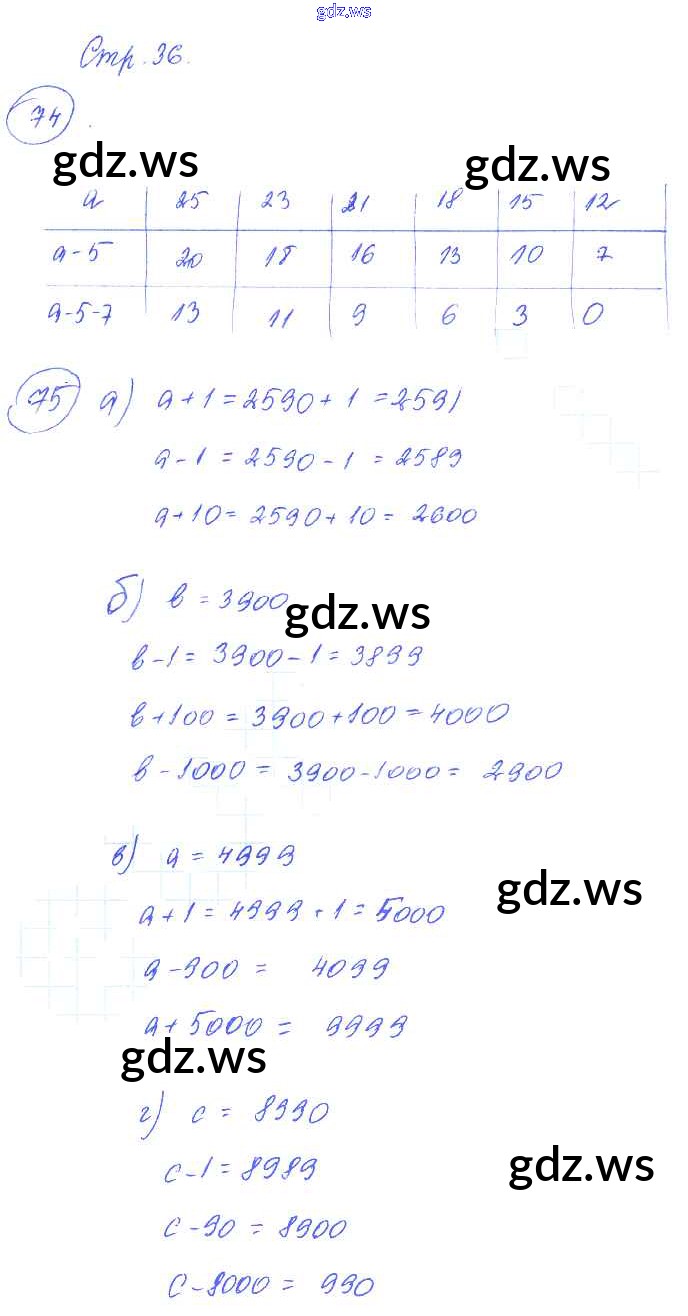 gdz.ws
Стр. 36.
74.
gdz.ws gdz.ws
a 25 23 21 18 15 12
a-5 20 18 16 13 10 7
a-5-7 13 11 9 6 3 0
75 а) a+1=2590+1=2591
a-1=2590-1=2589
a+10=2590+10=2600
б) в=3900
gdz.ws
в-1=3900-1=3899
в+100=3900+100=4000
в-1000=3900-1000=2900
в) a=4999
gdz.ws
a+1=4999+1=5000
a-900= 4099
a+5000= 9999
gdz.ws
г) c=8990
c-1=8989
gdz.ws
c-90=8900
c-8000=990